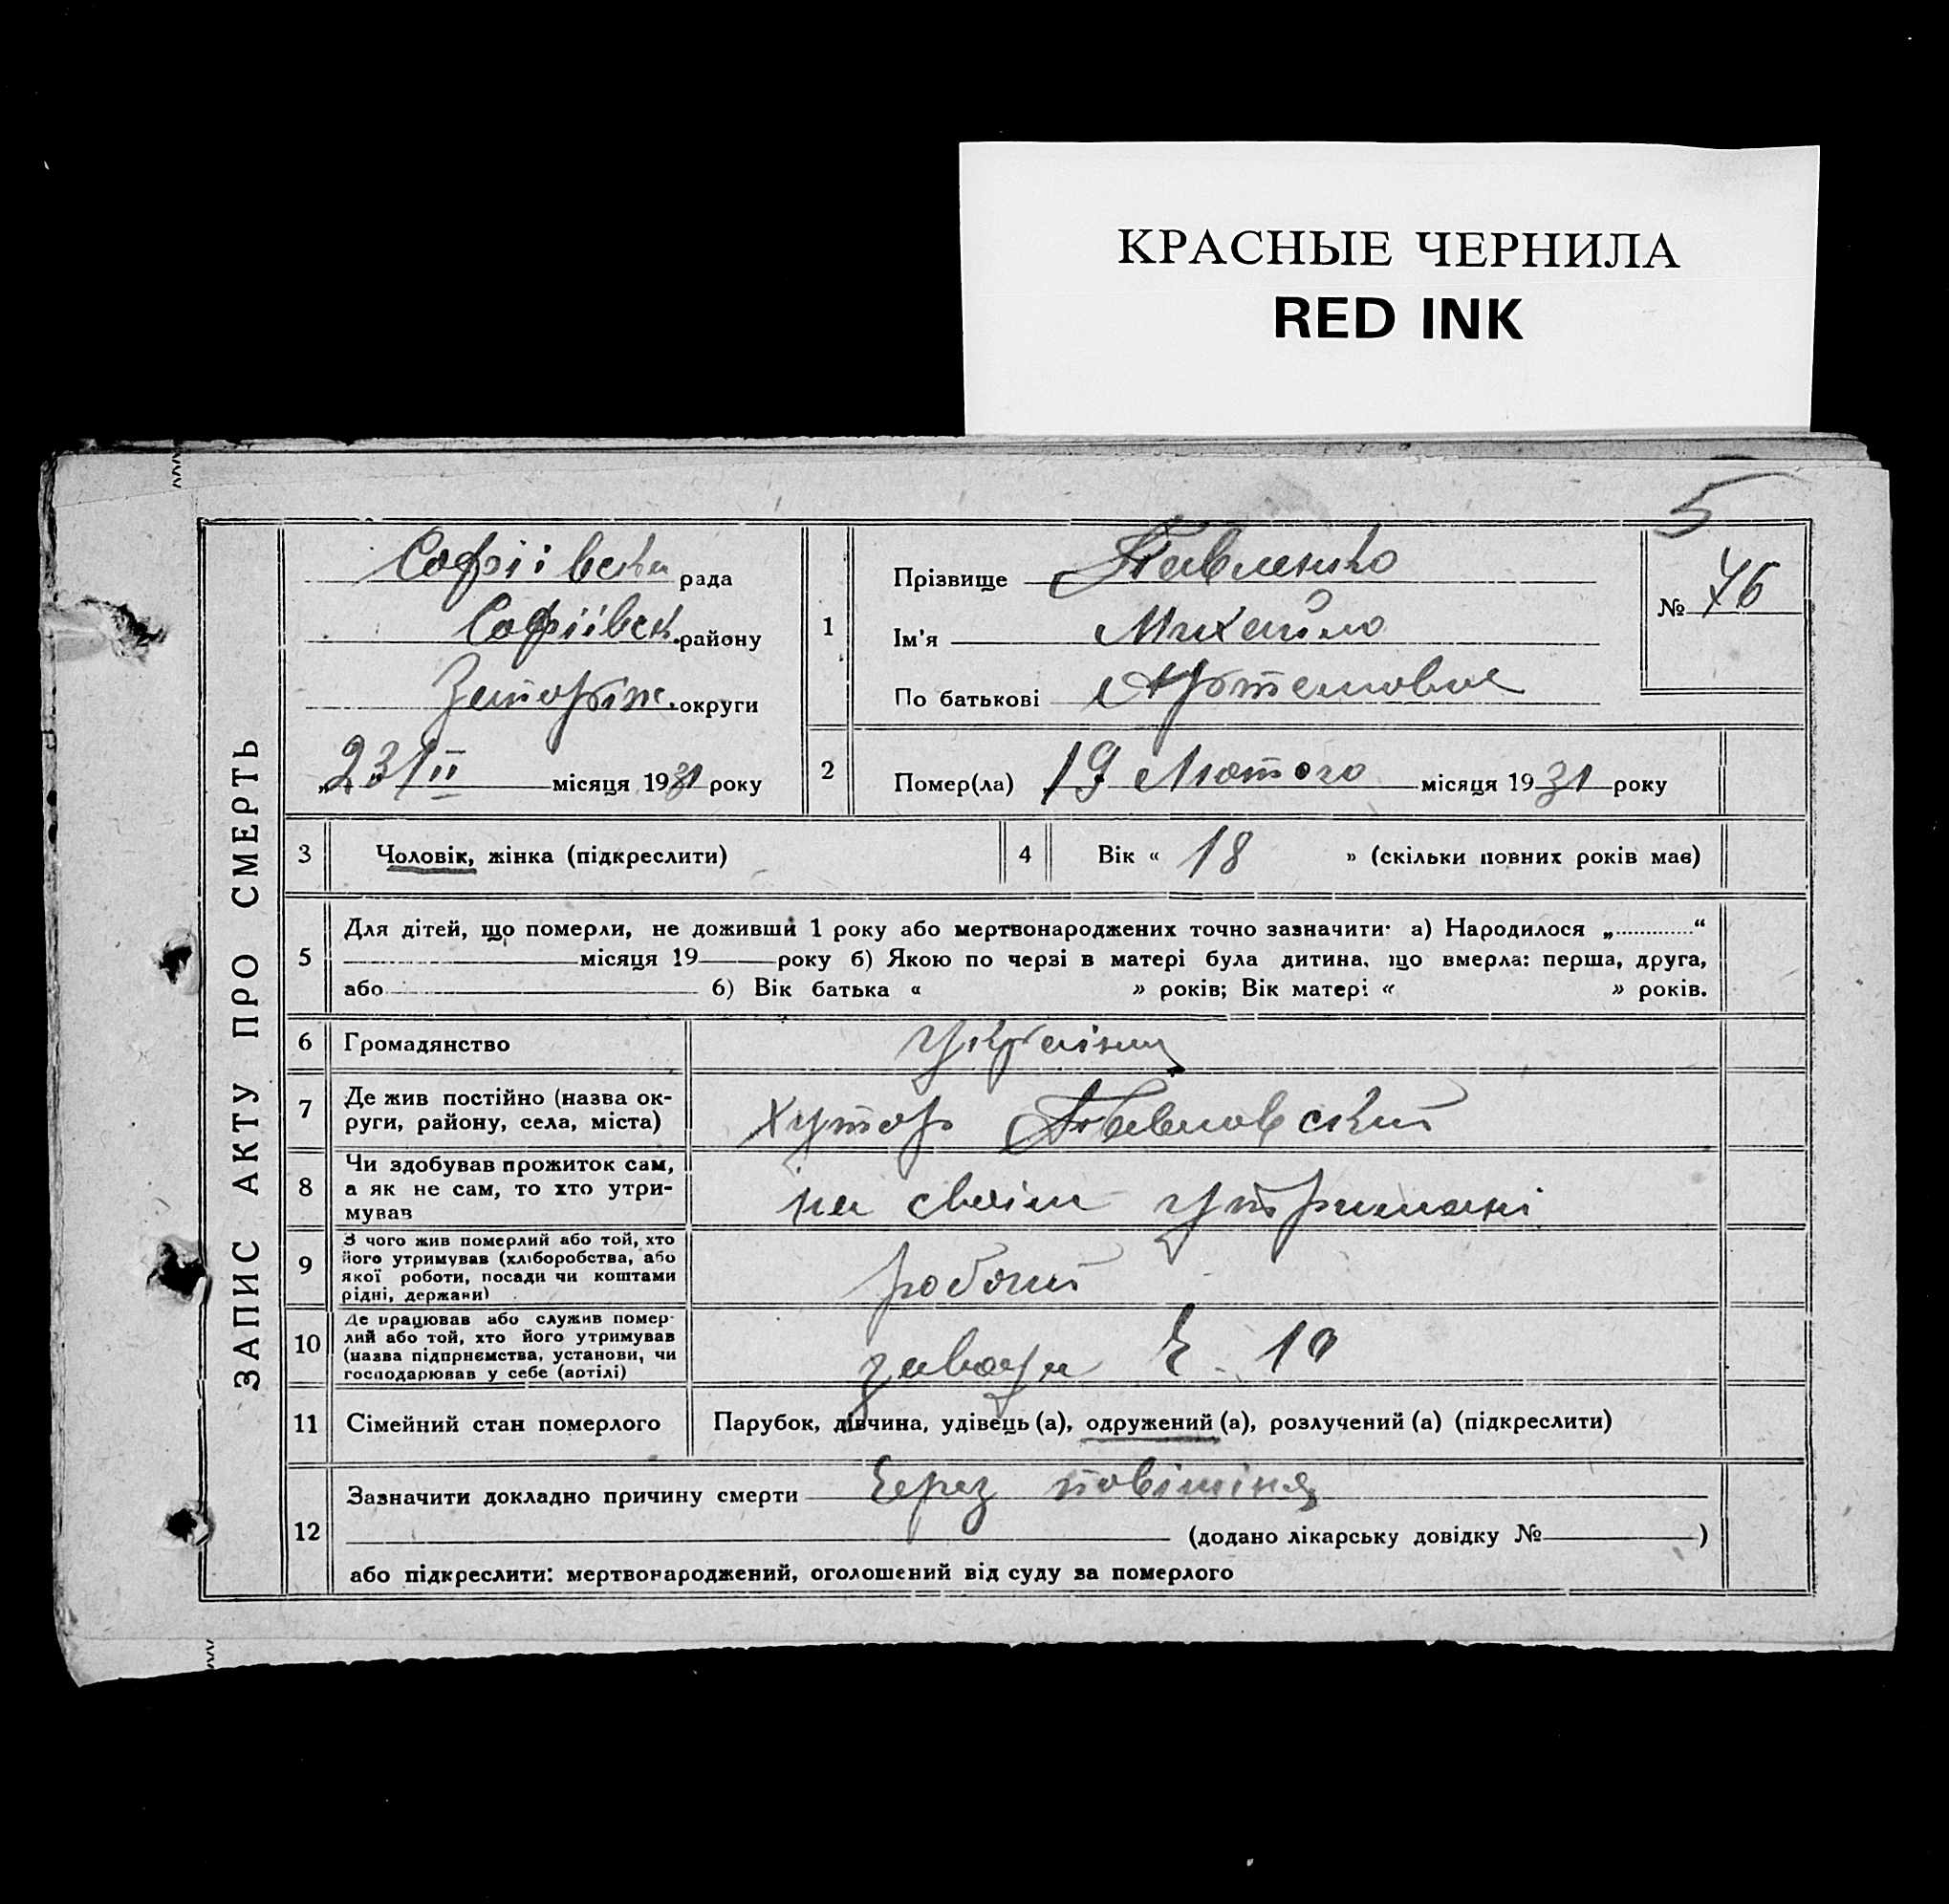 КРАСНЫЕ ЧЕРНИЛА
RED INK
5
ЗАПИС АКТУ ПРО СМЕРТЬ
Софіївська рада
Софіївськ. району
Запоріж. округи
„23/II місяця 1931 року
1
Прізвище Павленко
Ім'я Михайло
По батькові Артемовие
№ 76
2
Помер(ла) 19 Лютого місяця 1931 року
3 Чоловік, жінка (підкреслити)
4 Вік « 18 » (скільки повних років мав)
5
Для дітей, що померли, не доживши 1 року або мертвонароджених точно зазначити: а) Народилося „ “
місяця 19 року б) Якою по черзі в матері була дитина, що вмерла: перша, друга,
або б) Вік батька « » років; Вік матері « » років.
6 Громадянство Українц
7 Де жив постійно (назва ок-
руги, району, села, міста) хутор Павловский
8 Чи здобував прожиток сам,
а як не сам, то хто утри-
мував на своїм утримані
9 З чого жив померлий або той, хто
його утримував (хліборобства, або
якої роботи, посади чи коштами
рідні, держави) робочий
10 Де працював або служив помер-
лий або той, хто його утримував
(назва підприємства, установи, чи
господарював у себе (артілі) 10
11 Сімейний стан померлого Парубок, дівчина, удівець (а), одружений (а), розлучений (а) (підкреслити)
12
Зазначити докладно причину смерти Через повішіня
(додано лікарську довідку № )
або підкреслити: мертвонароджений, оголошений від суду за померлого